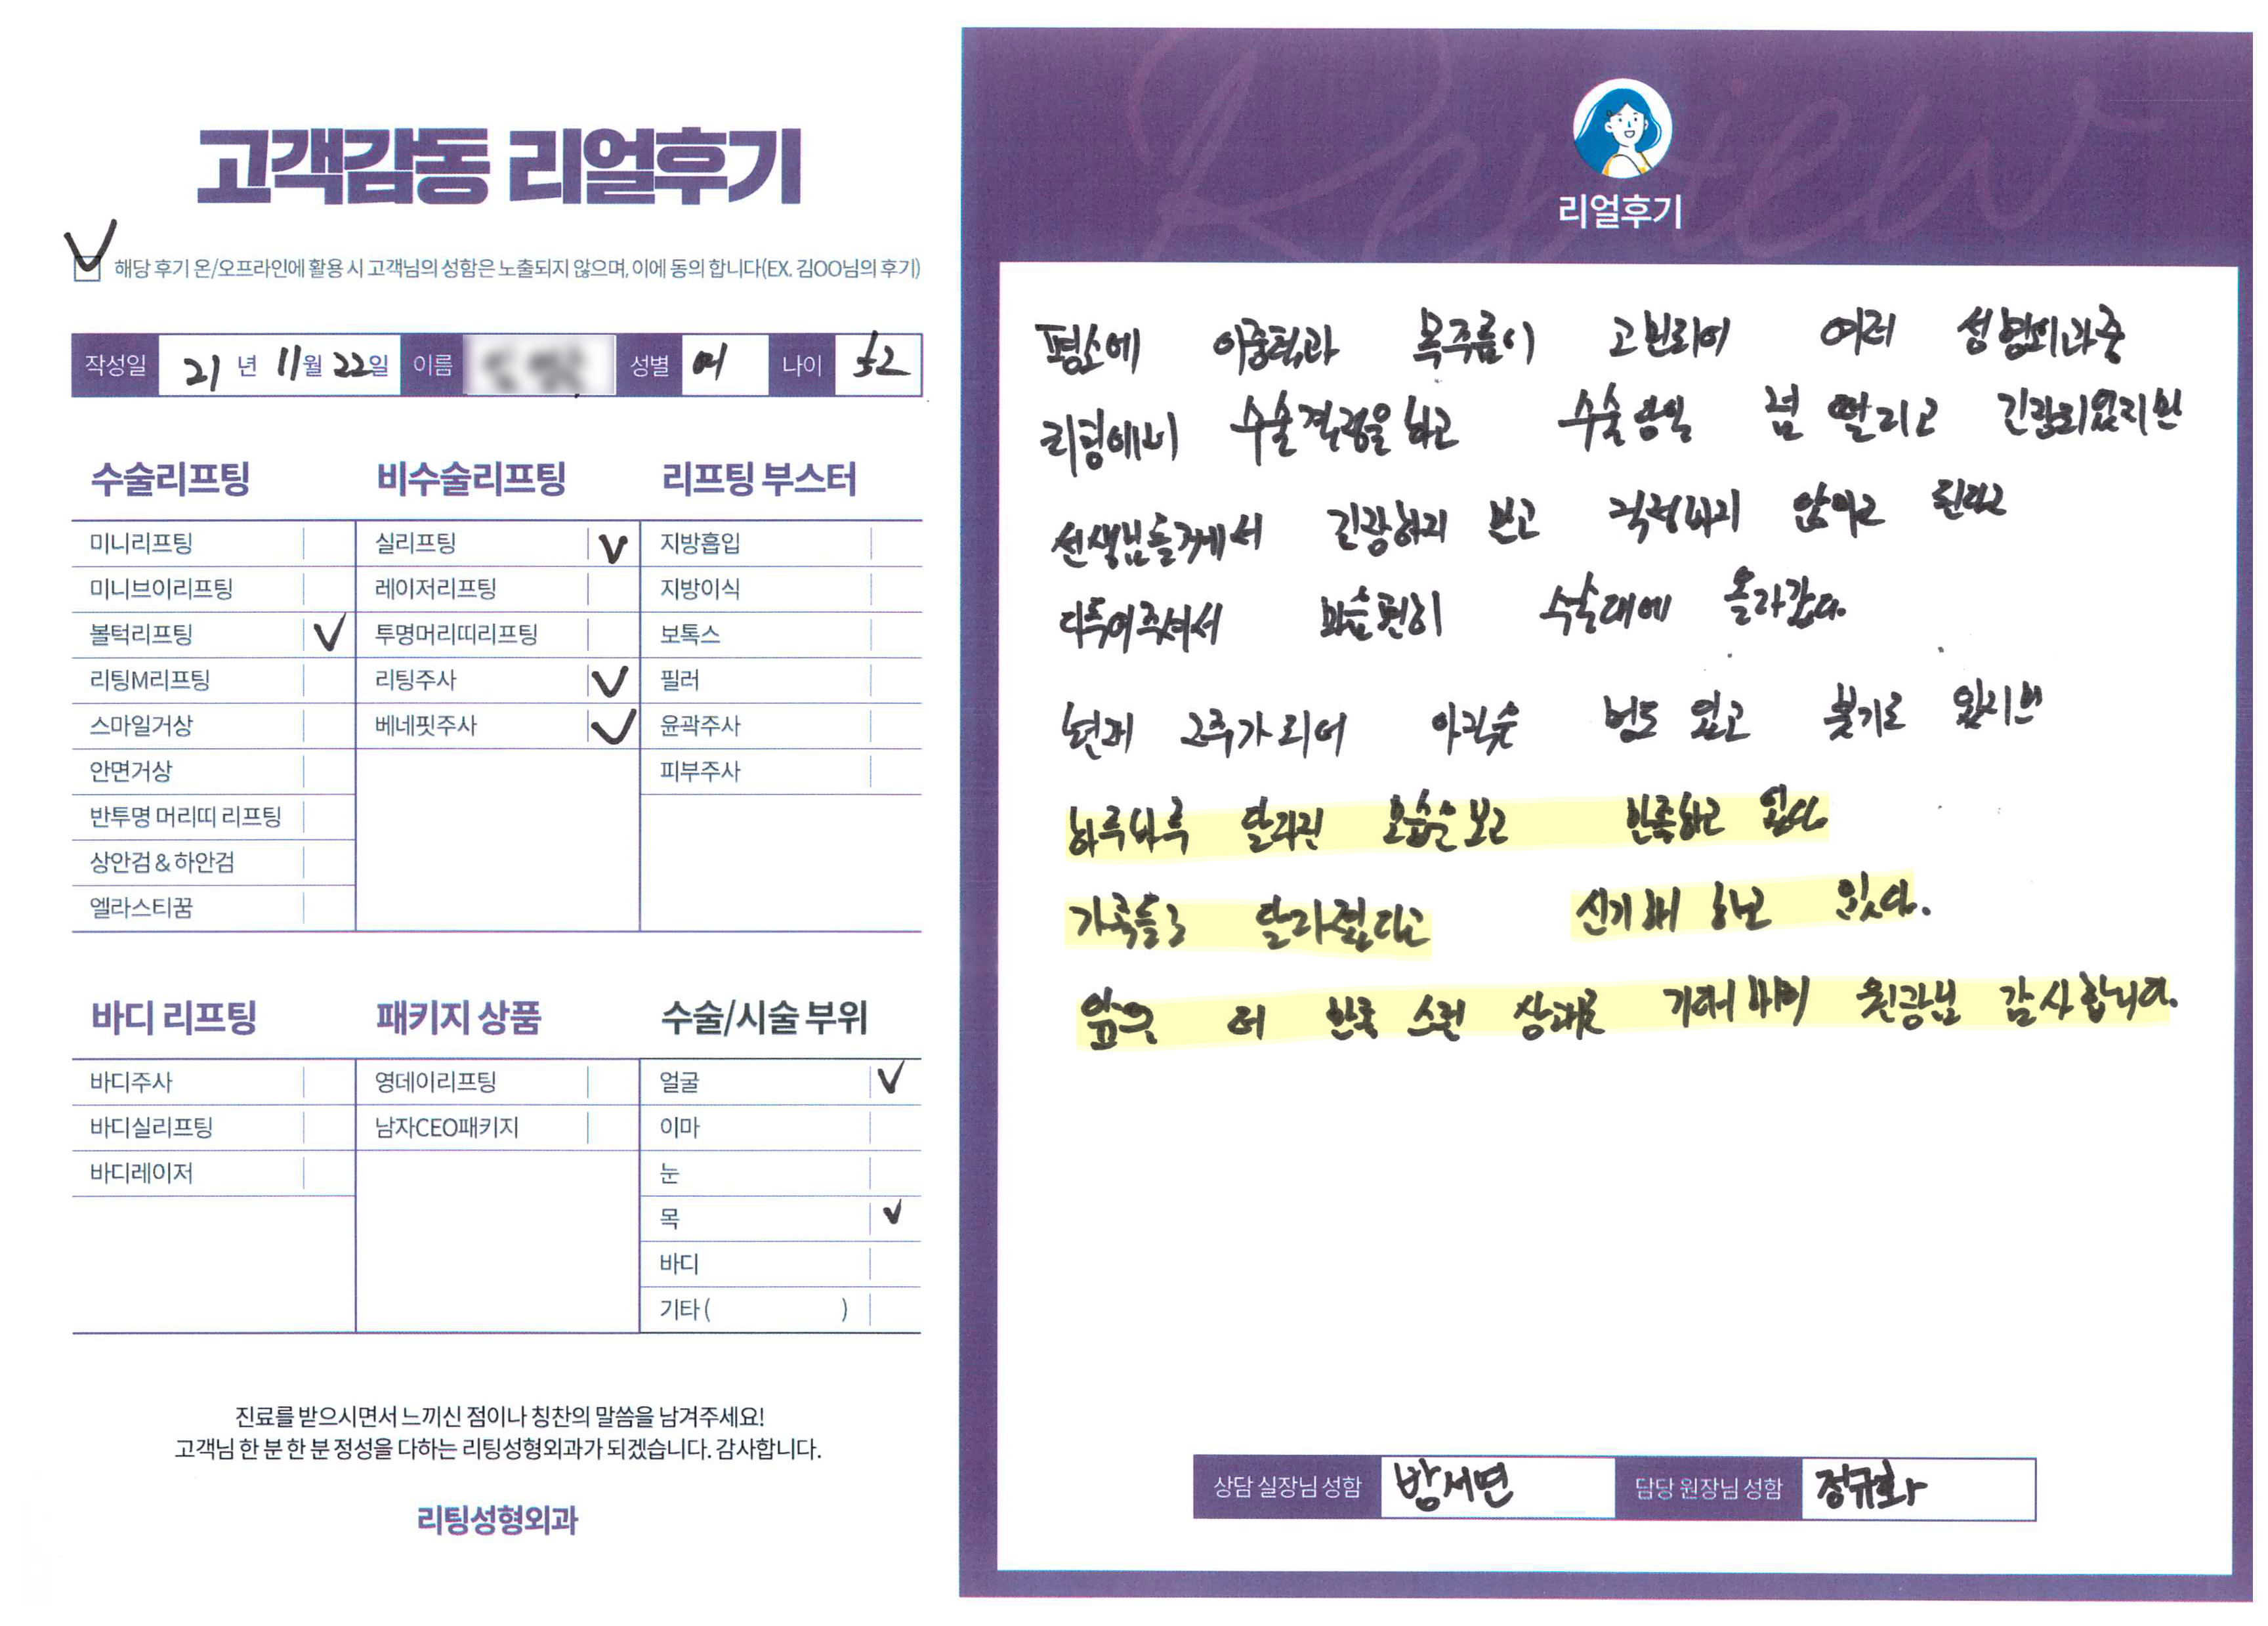 고객감동 리얼후기
해당 후기 온/오프라인에 활용 시 고객님의 성함은 노출되지 않으며, 이에 동의 합니다(EX. 김OO님의 후기)
작성일 21년 11월 22일 이름 성별 여 나이 52
수술리프팅 비수술리프팅 리프팅 부스터
미니리프팅 실리프팅 V 지방흡입
미니브이리프팅 레이저리프팅 지방이식
볼턱리프팅 V 투명머리띠리프팅 보톡스
리팅M리프팅 리팅주사 V 필러
스마일거상 베네핏주사 V 윤곽주사
안면거상 피부주사
반투명 머리띠 리프팅
상안검 & 하안검
엘라스티꿈
바디 리프팅 패키지 상품 수술/시술 부위
바디주사 영데이리프팅 얼굴 V
바디실리프팅 남자CEO패키지 이마
바디레이저 눈
목 V
바디
기타 ( )
진료를 받으시면서 느끼신 점이나 칭찬의 말씀을 남겨주세요!
고객님 한 분 한 분 정성을 다하는 리팅성형외과가 되겠습니다. 감사합니다.
리팅성형외과
Review
리얼후기
평소에 이중턱과 목주름이 고민되어 여러 성형외과중
리팅에서 수술결정을 하고 수술당일 넘 떨리고 긴장되었지만
선생님들께서 긴장하지 말고 걱정하지 않아도 된다고
다독여주셔서 마음편히 수술대에 올라갔다.
현재 2주가 되어 아직은 멍도 있고 붓기도 있지만
하루하루 달라진 모습을 보고 만족하고 있다.
가족들도 달라졌다고 신기해 하고 있다.
앞으로 더 만족 스런 상태를 기대하며 원장님 감사합니다.
상담 실장님 성함 방서연 담당 원장님 성함 정규화